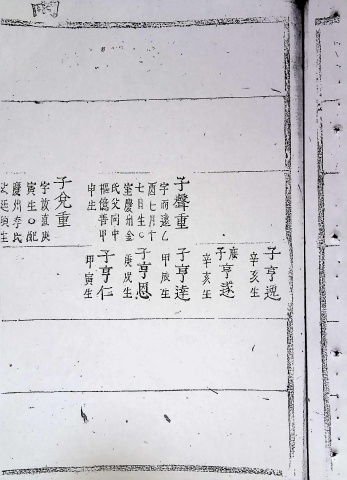 子亨逸
辛亥生
子亨遂
辛亥生
子聲重
字而遠乙
酉七月十
七日生○
室慶州金
氏父同中
樞億善甲
申生
子亨達
甲辰生
子亨恩
庚戌生
子亨仁
甲寅生
子兌重
字汝直庚
寅生○配
慶州李氏
父廷瑣生